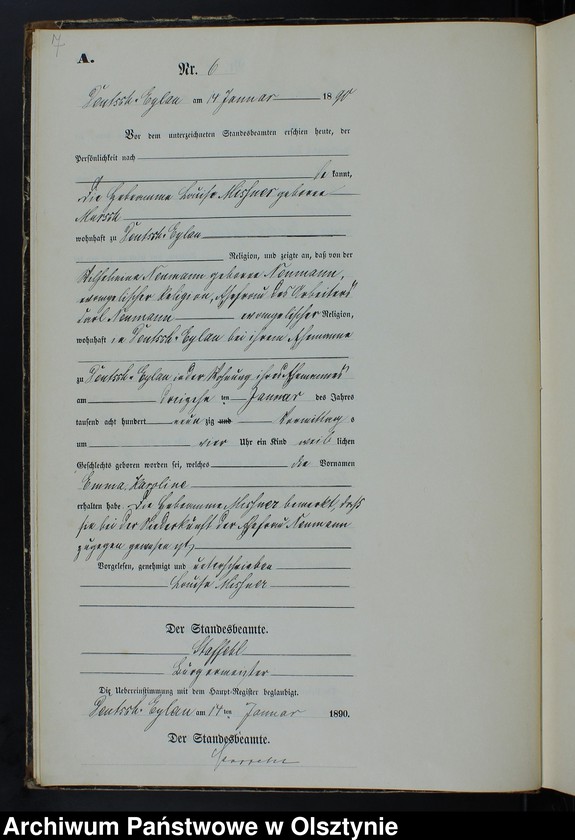 7
A.
Nr. 6
Deutsch-Eylau am 14 Januar 18 90
Vor dem unterzeichneten Standesbeamten erschien heute, der
Persönlichkeit nach
be kannt,
die Hebeamme Louise Meissner geborne
wohnhaft zu Deutsch-Eylau
Religion, und zeigte an, daß von der
Wilhelmine Neumann geborne Neumann,
evangelischer Religion, Ehefrau des Arbeiters
Carl Neumann evangelischer Religion,
wohnhaft in Deutsch-Eylau bei ihrem Ehemanne
zu Deutsch-Eylau in der Wohnung ihres Ehemannes
am dreizehn ten Januar des Jahres
tausend acht hundert neun zig und Vormittag s
um vier Uhr ein Kind weib lichen
Geschlechts geboren worden sei, welches die Vornamen
Emma Karoline
erhalten habe. Die Hebeamme Meissner bemerkt, daß
sie bei der Niederkunft der Ehefrau Neumann
zugegen gewesen ist
Vorgelesen, genehmigt und unterschrieben
Louise Meissner
Der Standesbeamte.
Staffehl
Bürgermeister
Die Uebereinstimmung mit dem Haupt-Register beglaubigt.
Deutsch-Eylau am 14 ten Januar 1890.
Der Standesbeamte.
Archiwum Państwowe w Olsztynie